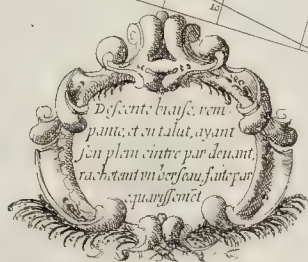 Descente biaise, rem-
pante, et en talut, ayant
son plein cintre par devant,
rachetant vn berseau, faite par
equarissemēt